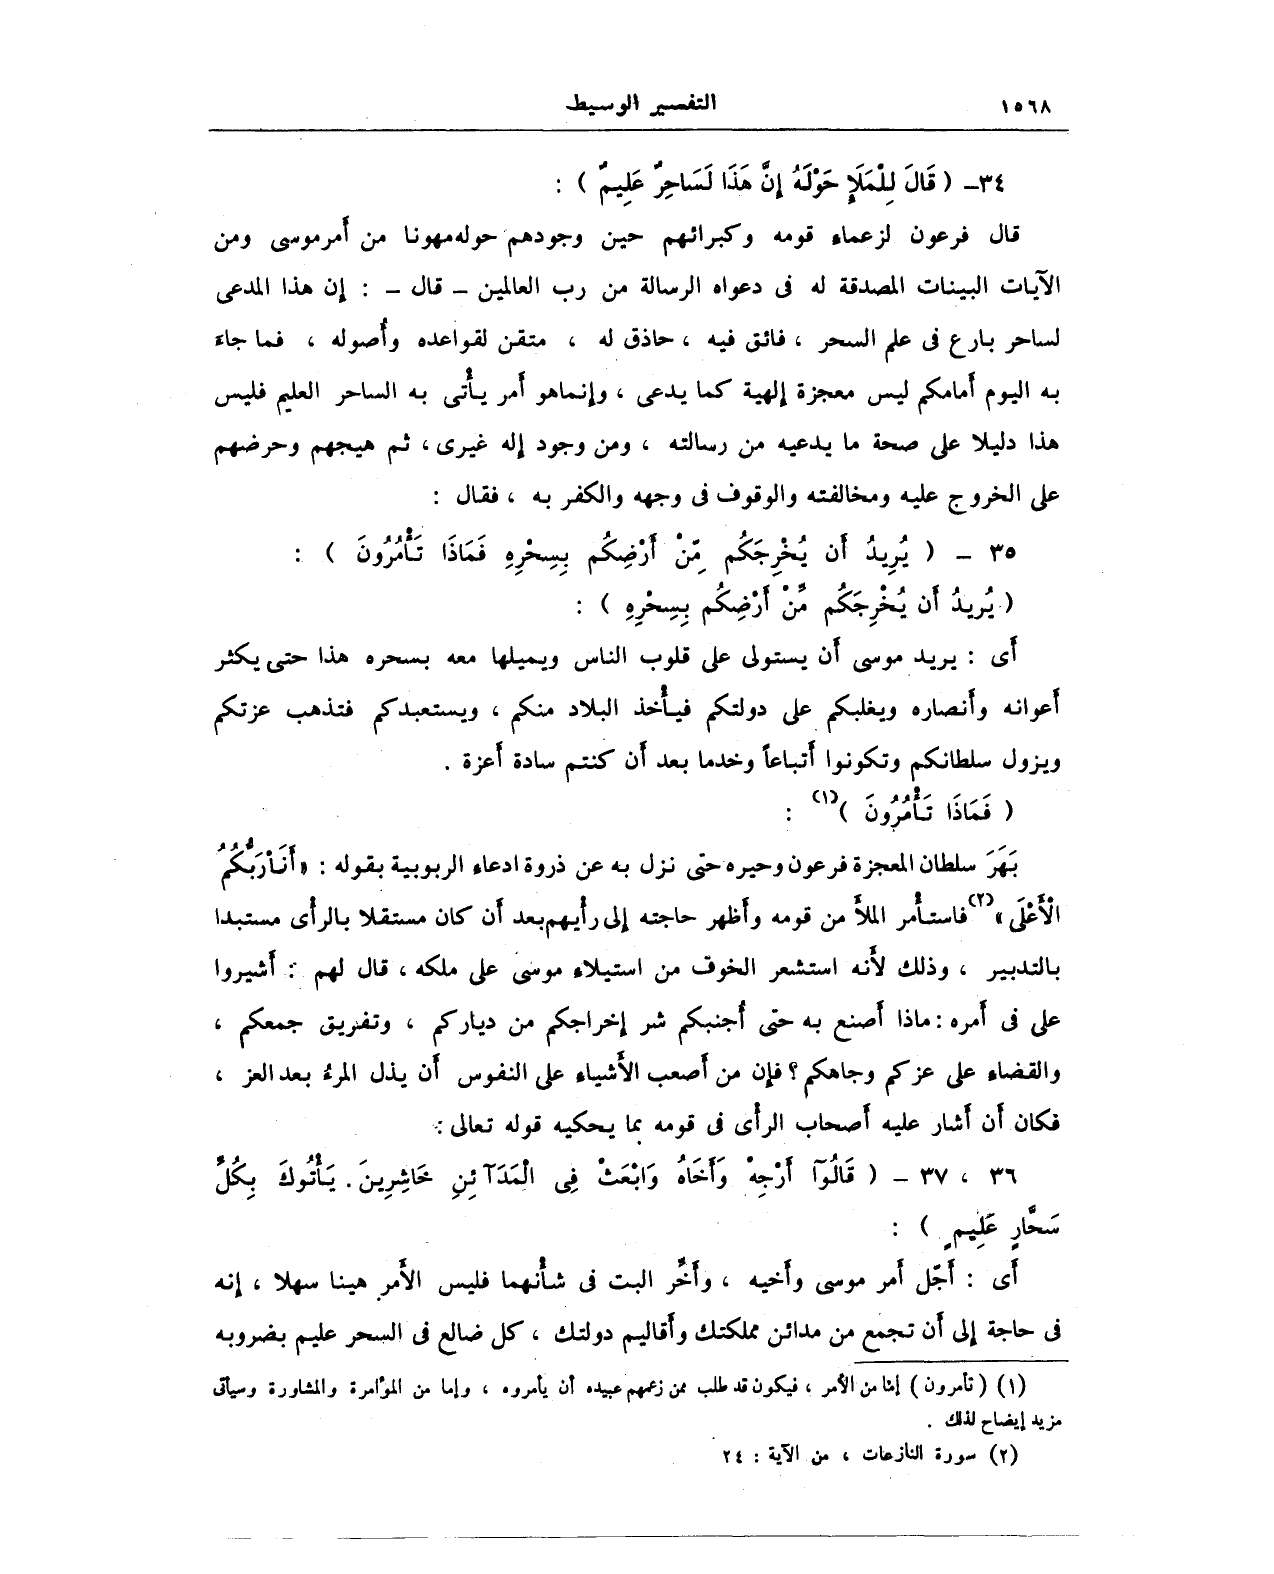 ١٥٦٨ التفسير الوسيط
٣٤– ( قَالَ لِلْمَلَإِ حَوْلَهُ إِنَّ هَذَا لَسَاحِرٌ عَلِيمٌ ) :
قال فرعون لزعماء قومه وكبرائهم حين وجودهم حوله مهونا من أمر موسى ومن
الآيات البينات المصدقة له فى دعواه الرسالة من رب العالمين – قال – : إن هذا المدعى
لساحر بارع فى علم السحر ، فائق فيه ، حاذق له ، متقن لقواعده وأُصوله ، فما جاءَ
به اليوم أَمامكم ليس معجزة إلهية كما يدعى ، وإنما هو أَمر يأْتى به الساحر العليم فليس
هذا دليلا على صحة ما يدعيه من رسالته ، ومن وجود إله غيرى ، ثم هيجهم وحرضهم
على الخروج عليه ومخالفته والوقوف فى وجهه والكفر به ، فقال :
٣٥ – ( يُرِيدُ أَن يُخْرِجَكُم مِّنْ أَرْضِكُم بِسِحْرِهِ فَمَاذَا تَأْمُرُونَ ) :
( يُرِيدُ أَن يُخْرِجَكُم مِّنْ أَرْضِكُم بِسِحْرِهِ ) :
أَى : يريد موسى أَن يستولى على قلوب الناس ويميلها معه بسحره هذا حتى يكثر
أَعوانه وأَنصاره ويغلبكم على دولتكم فيأْخذ البلاد منكم ، ويستعبدكم فتذهب عزتكم
ويزول سلطانكم وتكونوا أَتباعاً وخدما بعد أَن كنتم سادة أَعزة .
( فَمَاذَا تَأْمُرُونَ )(١) :
بَهَرَ سلطان المعجزة فرعون وحيره حتى نزل به عن ذروة ادعاء الربوبية بقوله : « أَنَا۠ رَبُّكُمُ
الْأَعْلَى »(٢) فاستأْمر الملأَ من قومه وأَظهر حاجته إلى رأْيهم بعد أَن كان مستقلا بالرأْى مستبدا
بالتدبير ، وذلك لأَنه استشعر الخوف من استيلاء موسى على ملكه ، قال لهم : أَشيروا
على فى أَمره : ماذا أَصنع به حتى أُجنبكم شر إخراجكم من دياركم ، وتفريق جمعكم ،
والقضاء على عزكم وجاهكم ؟ فإن من أَصعب الأَشياء على النفوس أَن يذل المرءُ بعد العز ،
فكان أَن أَشار عليه أَصحاب الرأْى فى قومه بما يحكيه قوله تعالى :
٣٦ ، ٣٧ – ( قَالُوٓا أَرْجِهْ وَأَخَاهُ وَابْعَثْ فِى الْمَدَآئِنِ حَاشِرِينَ . يَأْتُوكَ بِكُلِّ
سَحَّارٍ عَلِيمٍ ) :
أَى : أَجّل أَمر موسى وأَخيه ، وأَخِّر البت فى شأْنهما فليس الأَمر هينا سهلا ، إنه
فى حاجة إلى أَن تجمع من مدائن مملكتك وأَقاليم دولتك ، كل ضالع فى السحر عليم بضروبه
(١) ( تأمرون ) إما من الأمر ، فيكون قد طلب ممن زعمهم عبيده أن يأمروه ، وإما من المؤامرة والمشاورة وسيأتى
مزيد إيضاح لذلك .
(٢) سورة النازعات ، من الآية : ٢٤